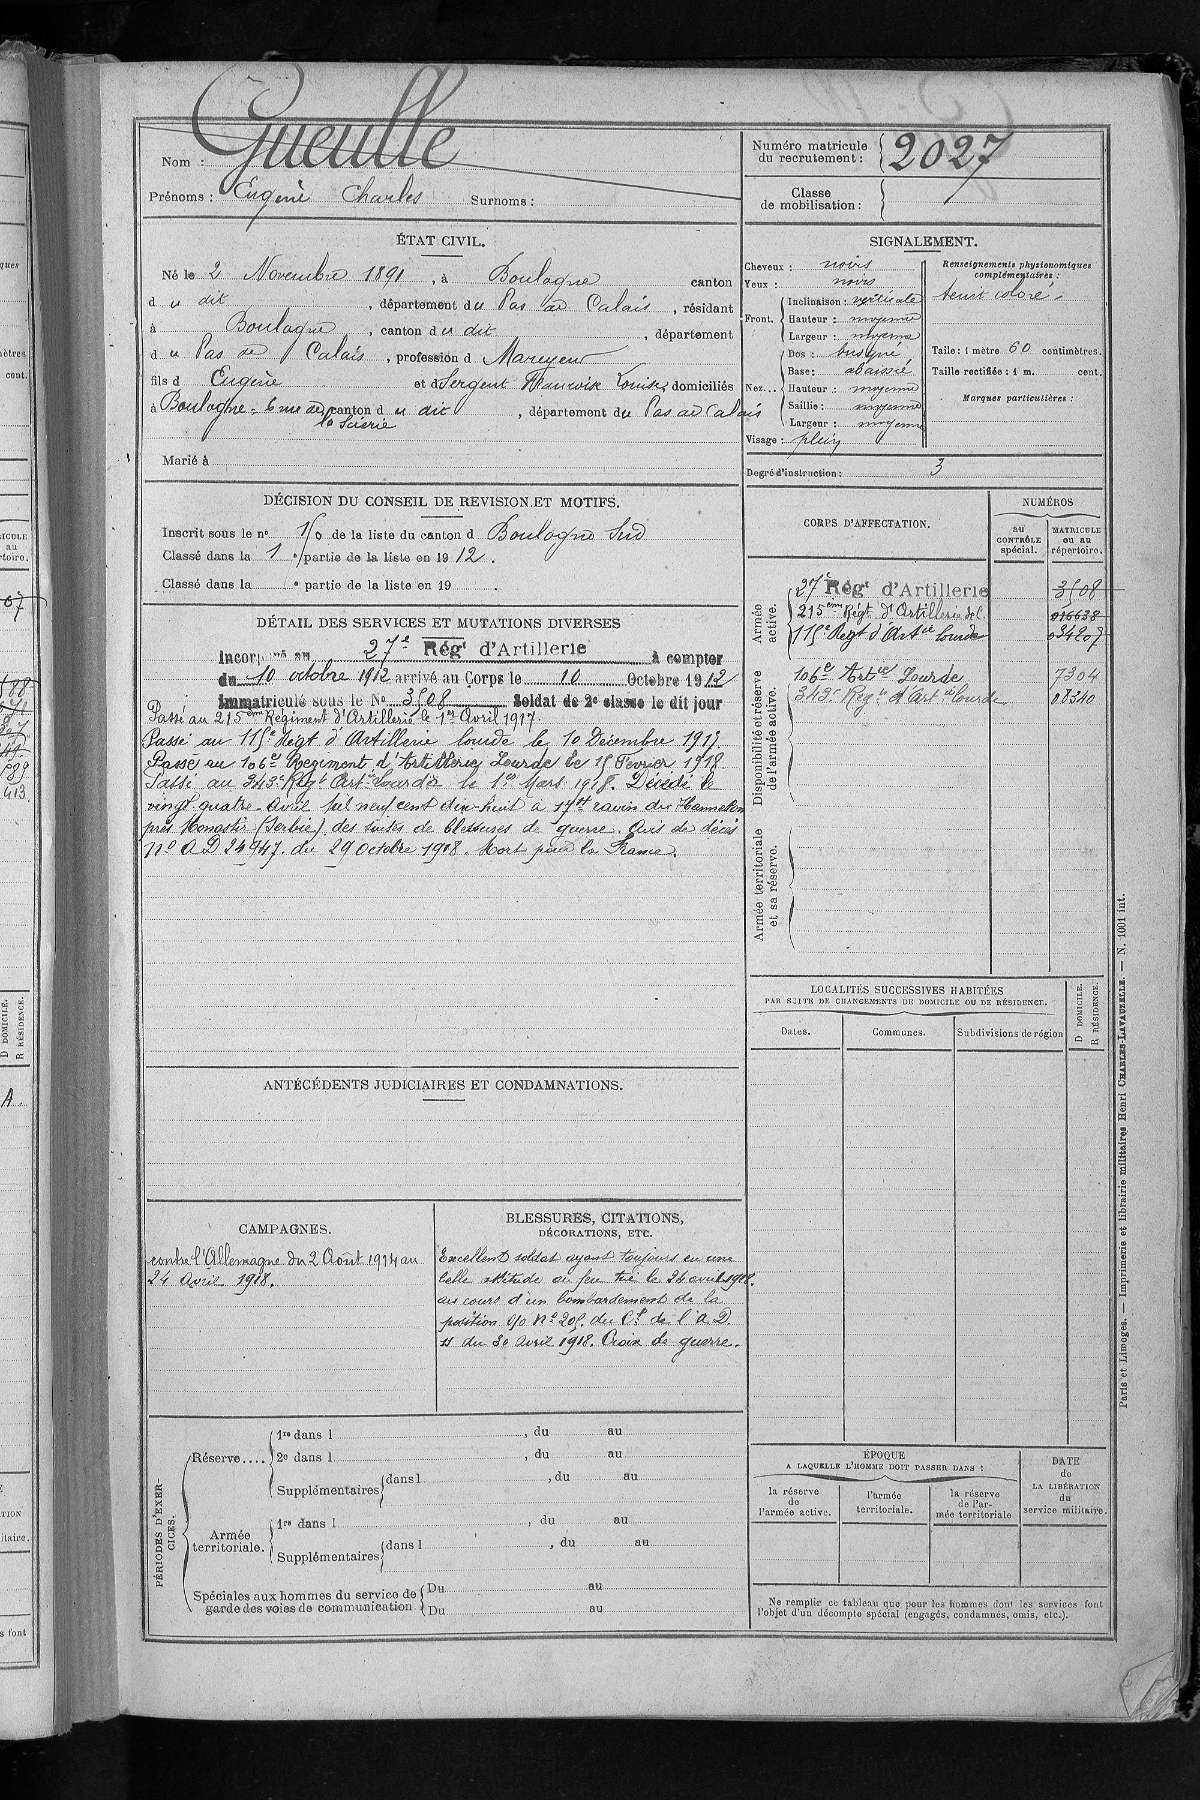 Nom : Gueulle
Prénoms : Eugène Charles Surnoms :
Numéro matricule du recrutement : 2027
Classe de mobilisation :
ÉTAT CIVIL.
Né le 2 Novembre 1891, à Boulogne canton
du dit, département du Pas de Calais, résidant
à Boulogne, canton du dit, département
du Pas de Calais, profession d Mareyeur
fils d Eugène et d Sergent Françoise Louise domiciliés
à Boulogne - 6 rue de la Scierie canton du dit, département du Pas de Calais
Marié à
SIGNALEMENT.
Cheveux : noirs
Yeux : noirs
Front. Inclinaison : verticale
Hauteur : moyenne
Largeur : moyenne
Nez... Dos : busqué
Base : abaissé
Hauteur : moyenne
Saillie : moyenne
Largeur : moyenne
Visage : plein
Renseignements physionomiques complémentaires :
teint coloré
Taille : 1 mètre 60 centimètres.
Taille rectifiée : 1 m. cent.
Marques particulières :
Degré d'instruction : 3
DÉCISION DU CONSEIL DE REVISION ET MOTIFS.
Inscrit sous le n° de la liste du canton d Boulogne Sud
Classé dans la 1e partie de la liste en 1912.
Classé dans la e partie de la liste en 19
DÉTAIL DES SERVICES ET MUTATIONS DIVERSES
Incorporé au 27e Régt d'Artillerie à compter
du 10 octobre 1912 arrivé au Corps le 10 Octobre 1912
Immatriculé sous le No 3508 Soldat de 2e classe le dit jour
Passé au 215eme Régiment d'Artillerie le 1er Avril 1917
Passé au 115e Régt d'Artillerie lourde le 10 Décembre 1917.
Passé au 106e Régiment d'Artillerie Lourde le 15 Fevrier 1918
Passé au 343e Régt Artie Lourde le 1er Mars 1918. Décédé le
vingt quatre Avril mil neuf cent dix huit à 17H ravin de
près Monastir (Serbie) des suites de blessures de guerre. Avis de décès
No AD 24947. du 29 octobre 1918. Mort pour la France.
CORPS D'AFFECTATION.
NUMÉROS
au CONTRÔLE spécial.
MATRICULE ou au répertoire.
Armée active.
27e Régt d'Artillerie 3508
215eme Régt d'Artillerie de C. 016638
115e Régt d'Artie Lourde 034207
Disponibilité et réserve de l'armée active.
106e Artie Lourde 7304
343e Régt d'Artie Lourde 08340
Armée territoriale et sa réserve.
LOCALITÉS SUCCESSIVES HABITÉES
PAR SUITE DE CHANGEMENTS DE DOMICILE OU DE RÉSIDENCE.
Dates. Communes. Subdivisions de région
D DOMICILE.
R RÉSIDENCE.
ANTÉCÉDENTS JUDICIAIRES ET CONDAMNATIONS.
CAMPAGNES.
contre l'Allemagne du 2 Août 1914 au
24 Avril 1918.
BLESSURES, CITATIONS,
DÉCORATIONS, ETC.
Excellent soldat ayant toujours eu une
belle attitude au feu tué le 24 avril 1918.
au cours d'un bombardement de la
position O/o No 205. du Ct de l'A.D.
du 30 Avril 1918. Croix de guerre.
PÉRIODES D'EXERCICES.
Réserve.... 1re dans l , du au
2e dans l , du au
Supplémentaires dans l , du au
Armée territoriale. 1re dans l , du au
Supplémentaires dans l , du au
Spéciales aux hommes du service de garde des voies de communication
Du au
Du au
ÉPOQUE
A LAQUELLE L'HOMME DOIT PASSER DANS :
la réserve de l'armée active.
l'armée territoriale.
la réserve de l'armée territoriale
DATE de LA LIBÉRATION du service militaire.
Ne remplir ce tableau que pour les hommes dont les services font
l'objet d'un décompte spécial (engagés, condamnés, omis, etc.).
Paris et Limoges. — Imprimerie et librairie militaires Henri CHARLES-LAVAUZELLE. — N. 1001 int.